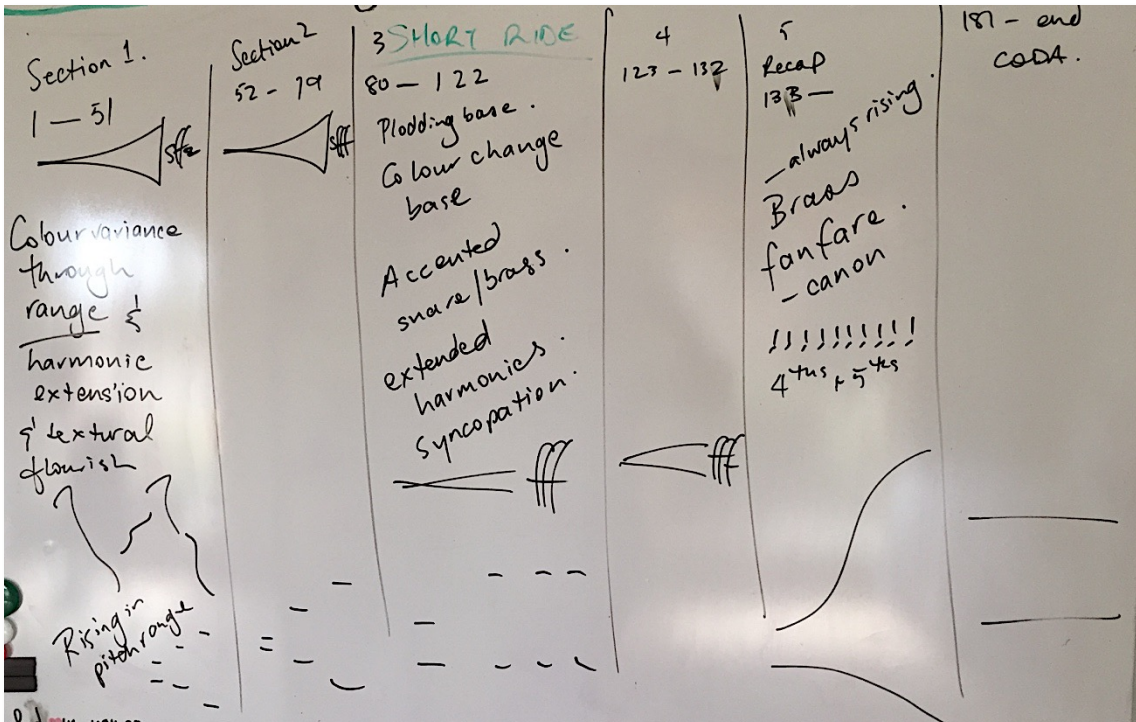 Section 1.
1 — 51
sffz
Colour variance
through
range &
harmonic
extension
& textural
flourish
Rising in
pitch range
Section 2
52 - 79
sff
3 SHORT RIDE
80 — 122
Plodding base.
Colour change
base
Accented
snare/brass.
extended
harmonics.
syncopation.
fff
4
123 - 132
fff
5
Recap
133 —
— always rising.
Brass
fanfare.
- canon
! ! ! ! ! ! ! ! ! !
4ths + 5ths
181 - end
CODA.